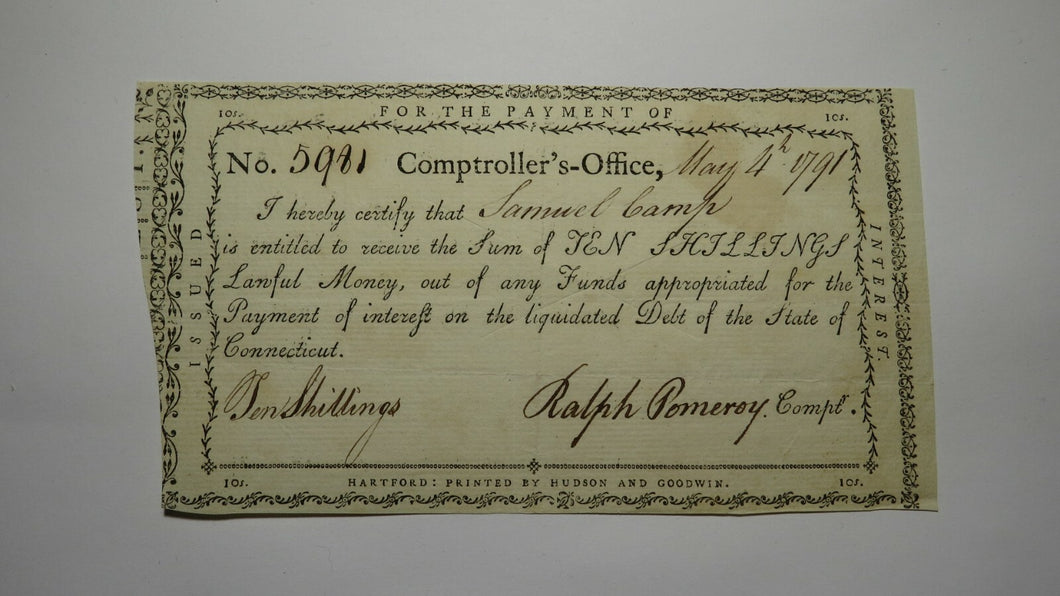 FOR THE PAYMENT OF
10s. 10s.
No. 5981 Comptroller's-Office, May 4th 1791
I hereby certify that Samuel Camp
is entitled to receive the Sum of TEN SHILLINGS
Lawful Money, out of any Funds appropriated for the
Payment of intereſt on the liquidated Debt of the State of
Connecticut.
Ten Shillings Ralph Pomeroy. Compt.r
10s. HARTFORD: PRINTED BY HUDSON AND GOODWIN. 10s.
ISSUED
INTEREST.